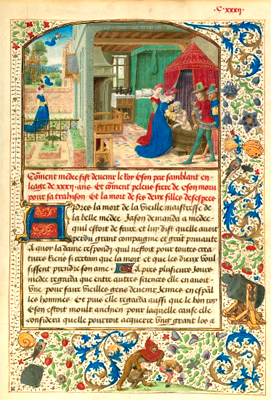 C·xxxij·
Comment medee fist devenir le roy Eson par samblant en
leage de xxxij ans· Et coment peleus frere de eson morut
pour sa trahison Et la mort de ses deux filles desesperees
Apres la mort de la vieille maistresse de
la belle medee Jason demanda a medee
quil estoit de faire et luy dist quelle avoit
perdu grant compaignie et grant prouffit
A quoy la dame respondy quil nestoit pour toutes crea
tures riens si certain que la mort et que les dieux vou
sissent prendre son ame Et pres plusieurs jours
medee regarda que entre autres sciences elle en avoit
Une pour faire vieilles gens devenir jennes en espal
les hommes Et puis elle regarda aussi que le bon roy
Eson estoit moult anchien pour laquelle cause elle
consydera quelle pourroit acquerre ung grant los a